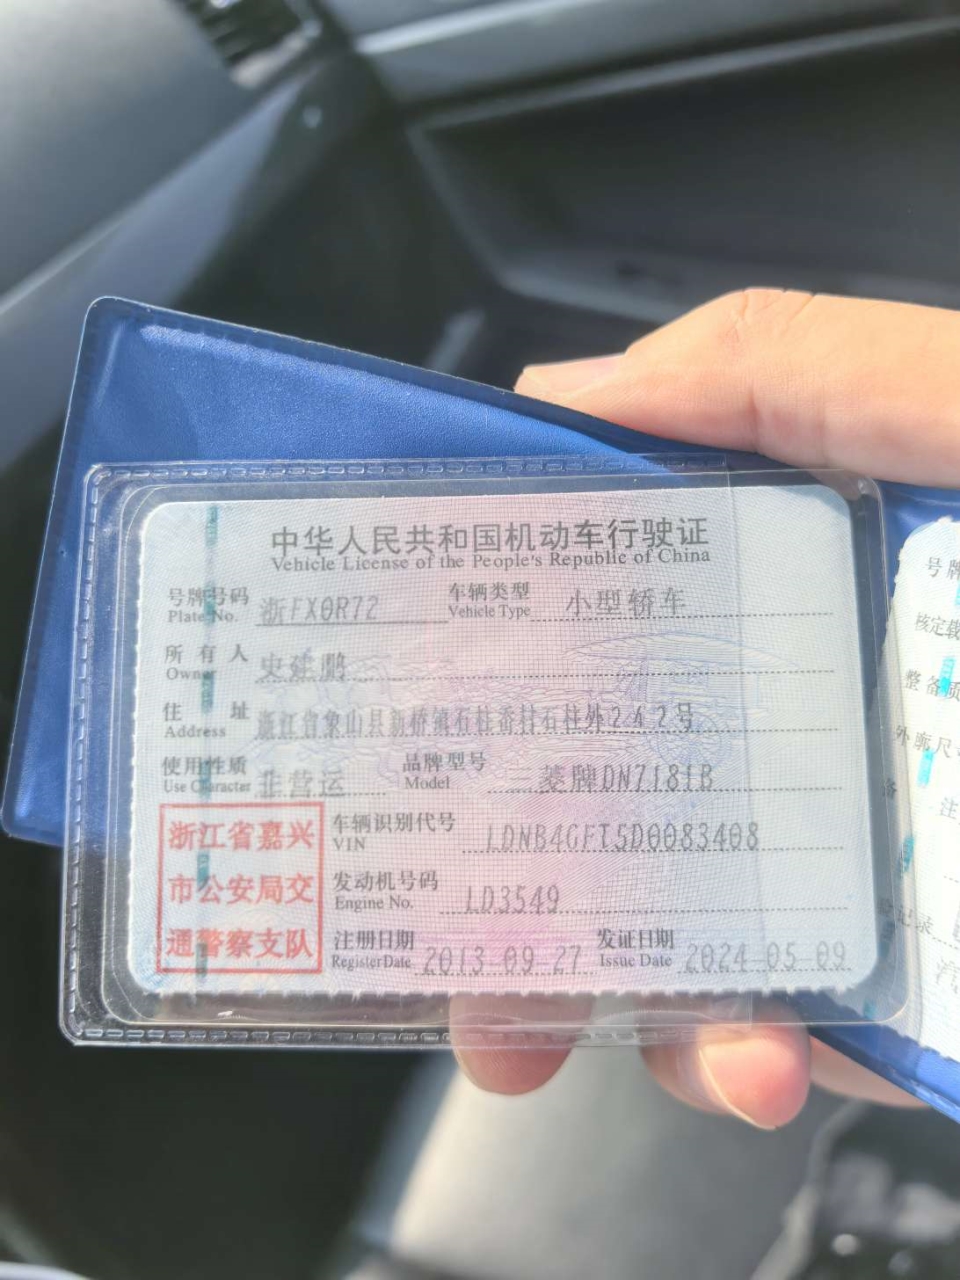 中华人民共和国机动车行驶证
Vehicle License of the People's Republic of China
号牌号码 浙FX0R72 车辆类型 小型轿车
Plate No. Vehicle Type
所有人 史建鹏
Owner
住址 浙江省象山县新桥镇石柱岙村石柱外242号
Address
使用性质 非营运 品牌型号 三菱牌DN7181B
Use Character Model
浙江省嘉兴
市公安局交
通警察支队
车辆识别代号 LDNB4GFT5D0083408
VIN
发动机号码 LD3549
Engine No.
注册日期 2013-09-27 发证日期 2024-05-09
Register Date Issue Date
号牌
核定载
整备质
外廓尺寸
注
记录